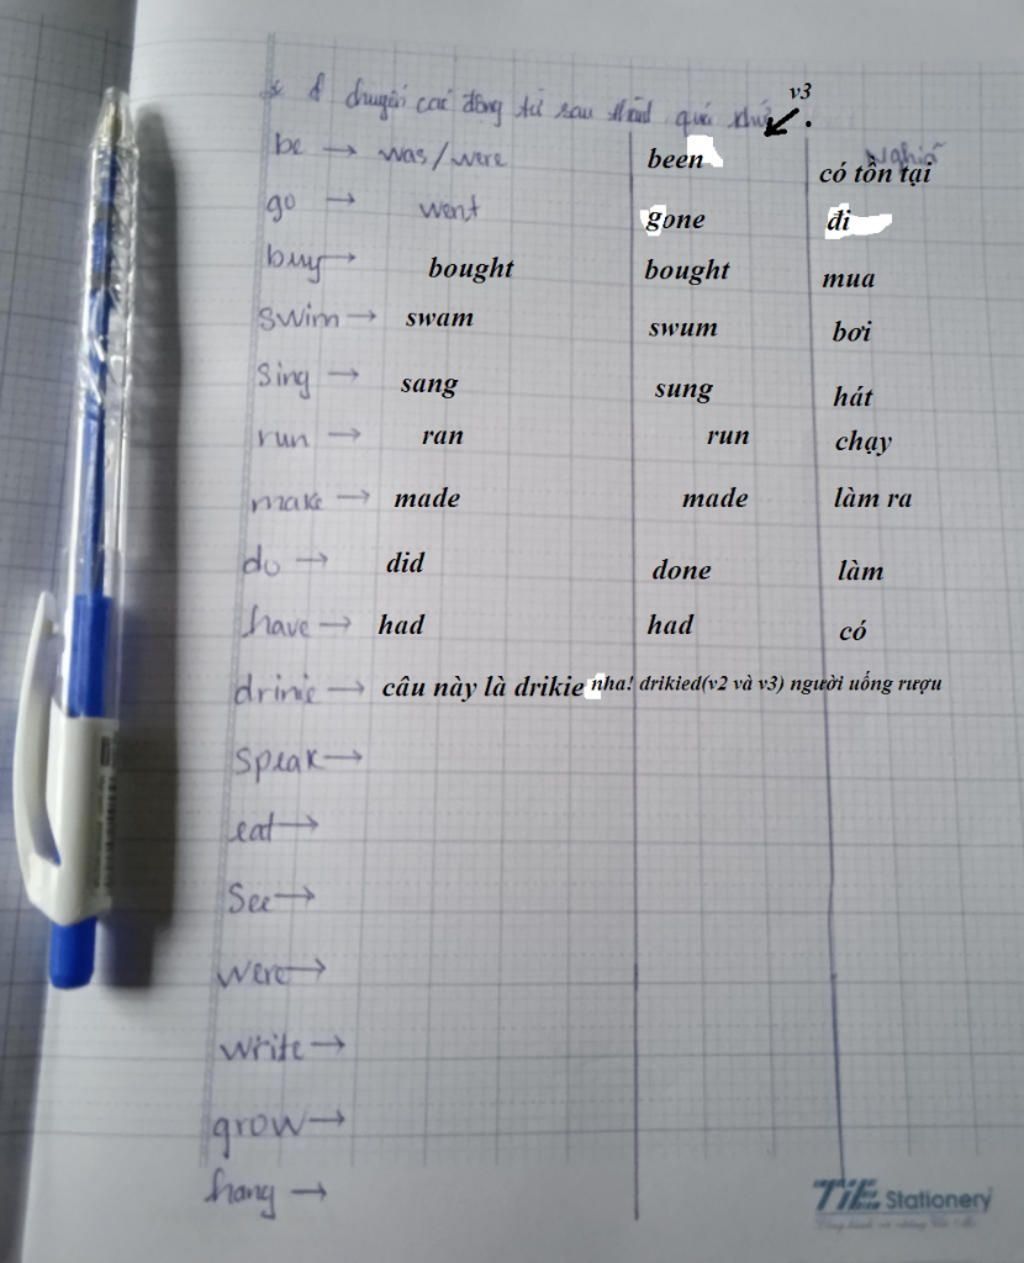 * chuyển các động từ sau thành quá khứ
v3
be → was/were been Nghĩa có tồn tại
go → went gone đi
buy → bought bought mua
swim → swam swum bơi
sing → sang sung hát
run → ran run chạy
make → made made làm ra
do → did done làm
have → had had có
drinie → câu này là drikie nha! drikied(v2 và v3) người uống rượu
speak →
eat →
see →
were →
write →
grow →
hang →
TiE Stationery